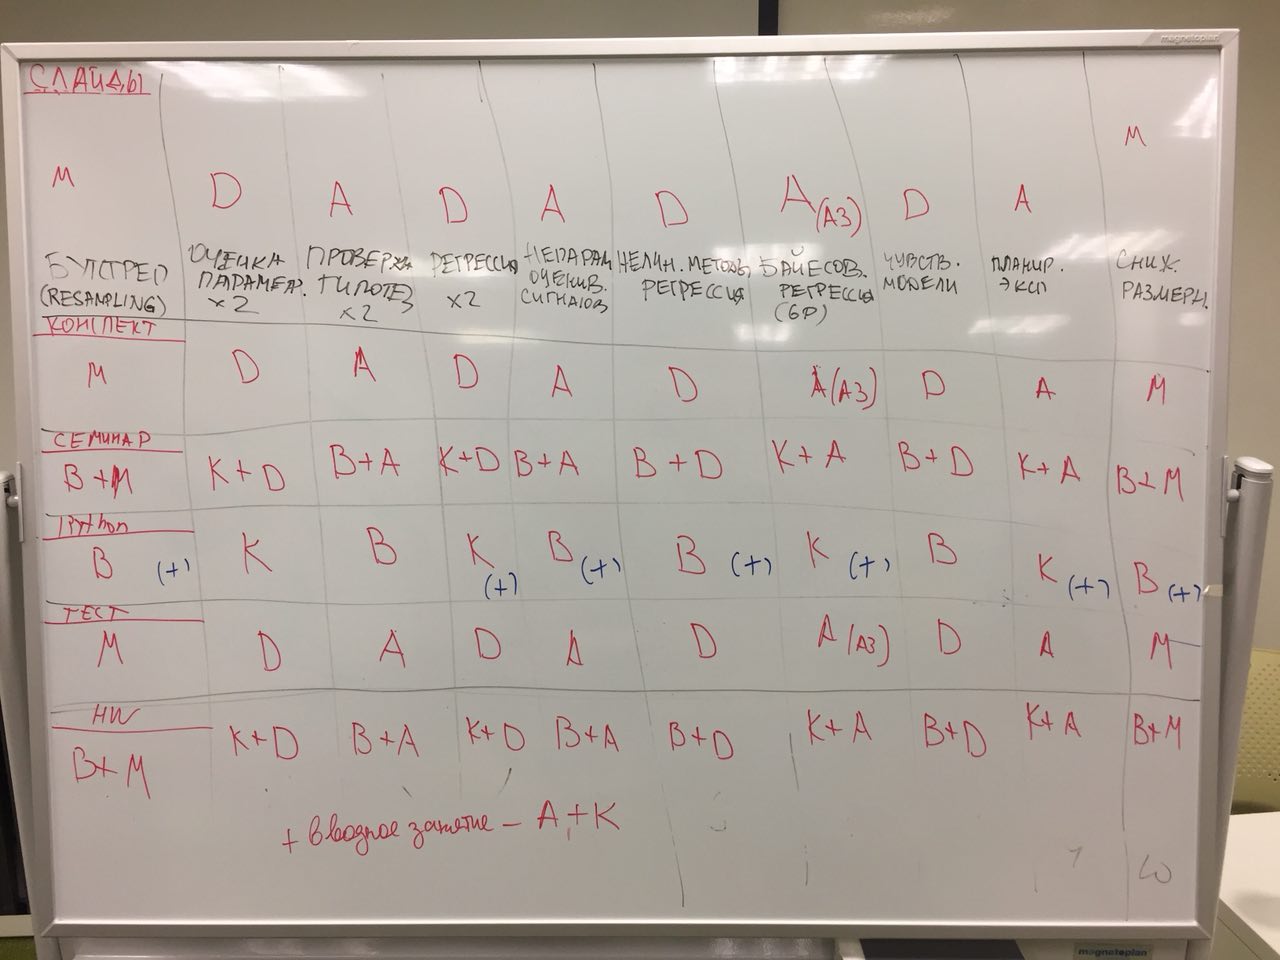 magnetoplan
СЛАЙДЫ
M D A D A D A(A3) D A M
БУТСТРЕП (RESAMPLING)
ОЦЕНКА ПАРАМЕТР. x2
ПРОВЕРКА ГИПОТЕЗ x2
РЕГРЕССИЯ x2
НЕПАРАМ ОЦЕНИВ. СИГНАЛОВ
НЕЛИН. МЕТОДЫ РЕГРЕССИЯ
БАЙЕСОВ. РЕГРЕССИЯ (GP)
ЧУВСТВ. МОДЕЛИ
ПЛАНИР. ЭКСП
СНИЖ. РАЗМЕРН.
КОНСПЕКТ
M D A D A D A(A3) D A M
СЕМИНАР
B+M K+D B+A K+D B+A B+D K+A B+D K+A B+M
IPython
B (+) K B K (+) B (+) B (+) K (+) B K (+) B (+)
ТЕСТ
M D A D A D A(A3) D A M
HW
B+M K+D B+A K+D B+A B+D K+A B+D K+A B+M
+ вводное занятие – A+K
magnetoplan